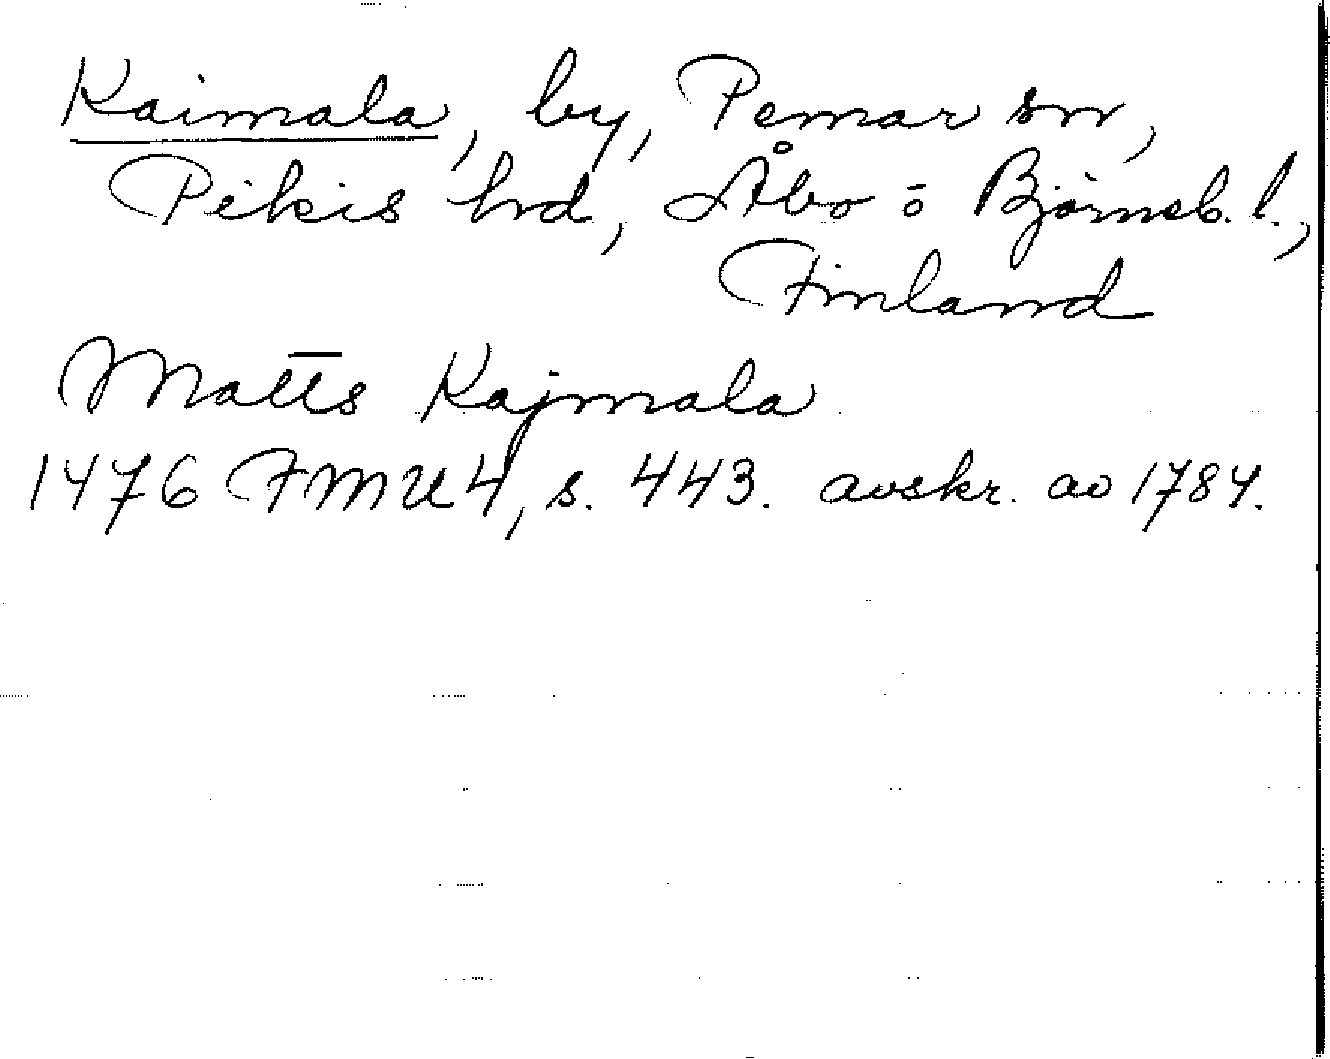 Kaimala, by, Pemar sn,
Pikis hd, Åbo o Björneb. l.,
Finland
Matts Kajmala
1476 FMU 4, s. 443. avskr. av 1784.